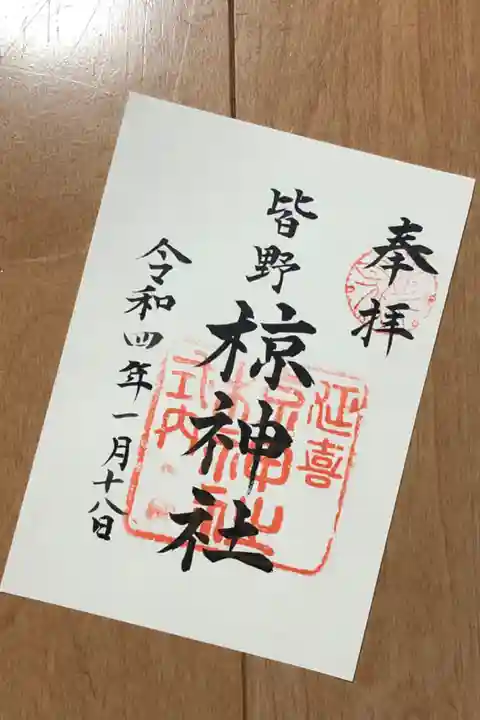 奉拝
皆野
椋神社
令和四年一月十八日
延喜
椋神社
式内